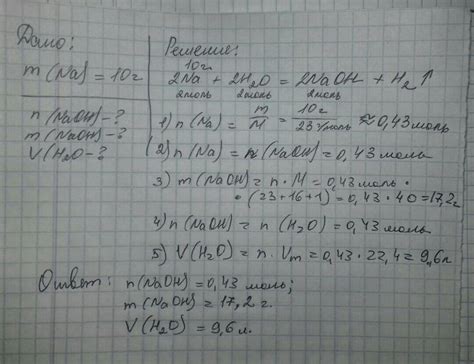 Дано:
m(Na) = 10г
n(NaOH) - ?
m(NaOH) = ?
V(H₂O - ?
Решение:
10г
2Na + 2H₂O = 2NaOH + H₂↑
2моль 2моль 2моль
1) n(Na) = m/M = 10г/23г/моль ≈ 0,43 моль
2) n(Na) = n(NaOH) = 0,43 моль
3) m(NaOH) = n · M = 0,43 моль ·
· (23+16+1) = 0,43 · 40 = 17,2г
4) n(NaOH) = n(H₂O) = 0,43 моль
5) V(H₂O) = n · Vm = 0,43 · 22,4 = 9,6л
Ответ: n(NaOH) = 0,43 моль;
m(NaOH) = 17,2 г.
V(H₂O) = 9,6 л.